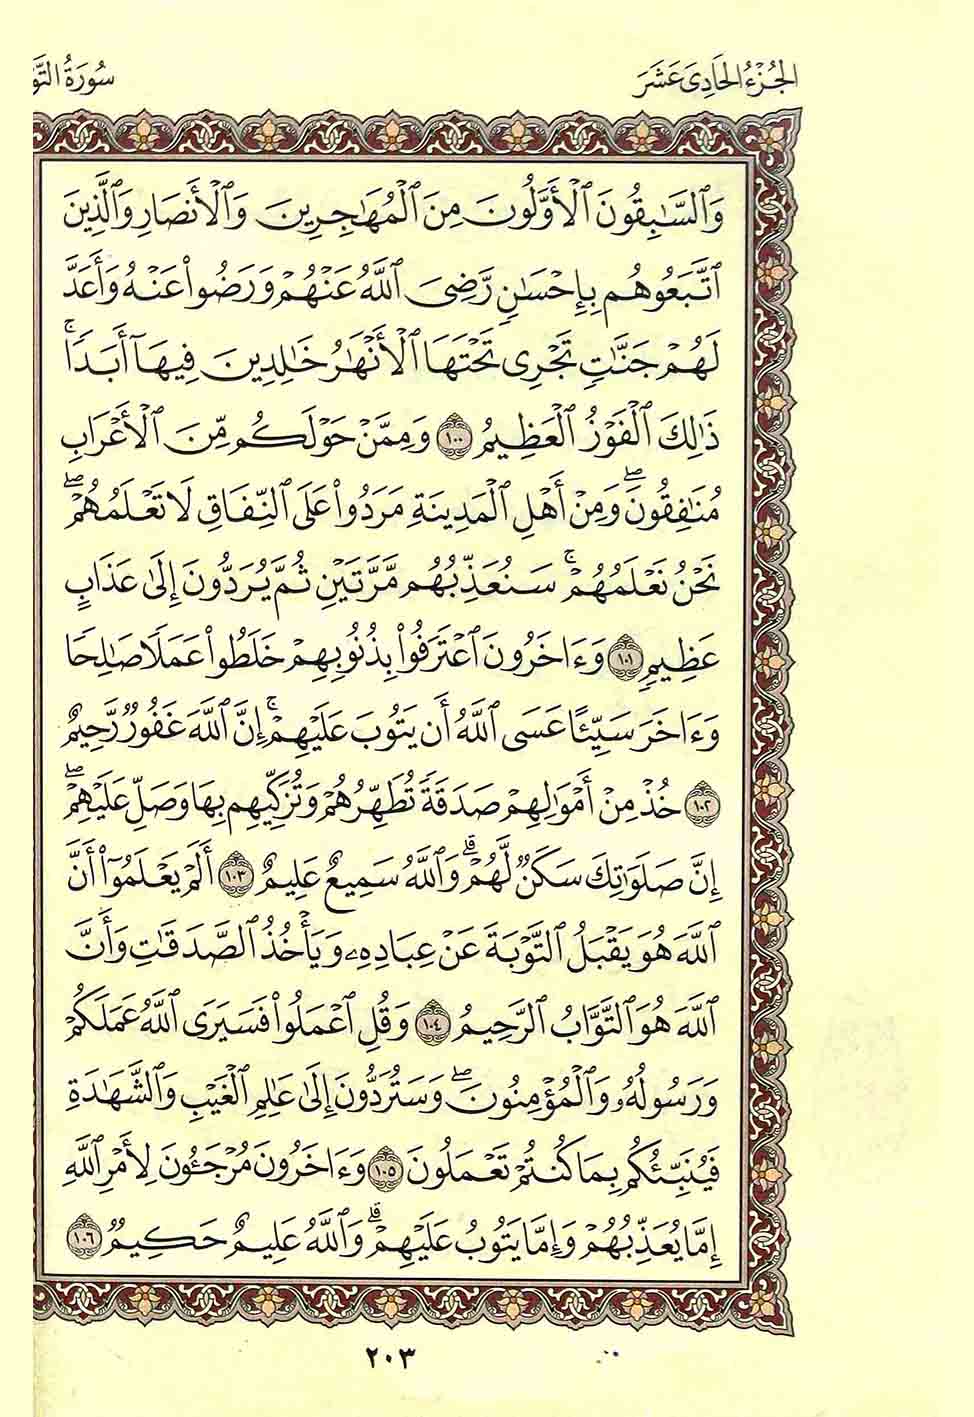 الجُزْءُ الحَادِىَ عَشَرَ
سُورَةُ التَّو
وَٱلسَّٰبِقُونَ ٱلْأَوَّلُونَ مِنَ ٱلْمُهَٰجِرِينَ وَٱلْأَنصَارِ وَٱلَّذِينَ
ٱتَّبَعُوهُم بِإِحْسَٰنٍ رَّضِىَ ٱللَّهُ عَنْهُمْ وَرَضُوا۟ عَنْهُ وَأَعَدَّ
لَهُمْ جَنَّٰتٍ تَجْرِى تَحْتَهَا ٱلْأَنْهَٰرُ خَٰلِدِينَ فِيهَآ أَبَدًا ۚ
ذَٰلِكَ ٱلْفَوْزُ ٱلْعَظِيمُ ١٠٠ وَمِمَّنْ حَوْلَكُم مِّنَ ٱلْأَعْرَابِ
مُنَٰفِقُونَ ۖ وَمِنْ أَهْلِ ٱلْمَدِينَةِ مَرَدُوا۟ عَلَى ٱلنِّفَاقِ لَا تَعْلَمُهُمْ ۖ
نَحْنُ نَعْلَمُهُمْ ۚ سَنُعَذِّبُهُم مَّرَّتَيْنِ ثُمَّ يُرَدُّونَ إِلَىٰ عَذَابٍ
عَظِيمٍ ١٠١ وَءَاخَرُونَ ٱعْتَرَفُوا۟ بِذُنُوبِهِمْ خَلَطُوا۟ عَمَلًا صَٰلِحًا
وَءَاخَرَ سَيِّئًا عَسَى ٱللَّهُ أَن يَتُوبَ عَلَيْهِمْ ۚ إِنَّ ٱللَّهَ غَفُورٌ رَّحِيمٌ
١٠٢ خُذْ مِنْ أَمْوَٰلِهِمْ صَدَقَةً تُطَهِّرُهُمْ وَتُزَكِّيهِم بِهَا وَصَلِّ عَلَيْهِمْ ۖ
إِنَّ صَلَوٰتَكَ سَكَنٌ لَّهُمْ ۗ وَٱللَّهُ سَمِيعٌ عَلِيمٌ ١٠٣ أَلَمْ يَعْلَمُوٓا۟ أَنَّ
ٱللَّهَ هُوَ يَقْبَلُ ٱلتَّوْبَةَ عَنْ عِبَادِهِۦ وَيَأْخُذُ ٱلصَّدَقَٰتِ وَأَنَّ
ٱللَّهَ هُوَ ٱلتَّوَّابُ ٱلرَّحِيمُ ١٠٤ وَقُلِ ٱعْمَلُوا۟ فَسَيَرَى ٱللَّهُ عَمَلَكُمْ
وَرَسُولُهُۥ وَٱلْمُؤْمِنُونَ ۖ وَسَتُرَدُّونَ إِلَىٰ عَٰلِمِ ٱلْغَيْبِ وَٱلشَّهَٰدَةِ
فَيُنَبِّئُكُم بِمَا كُنتُمْ تَعْمَلُونَ ١٠٥ وَءَاخَرُونَ مُرْجَئُونَ لِأَمْرِ ٱللَّهِ
إِمَّا يُعَذِّبُهُمْ وَإِمَّا يَتُوبُ عَلَيْهِمْ ۗ وَٱللَّهُ عَلِيمٌ حَكِيمٌ ١٠٦
٢٠٣